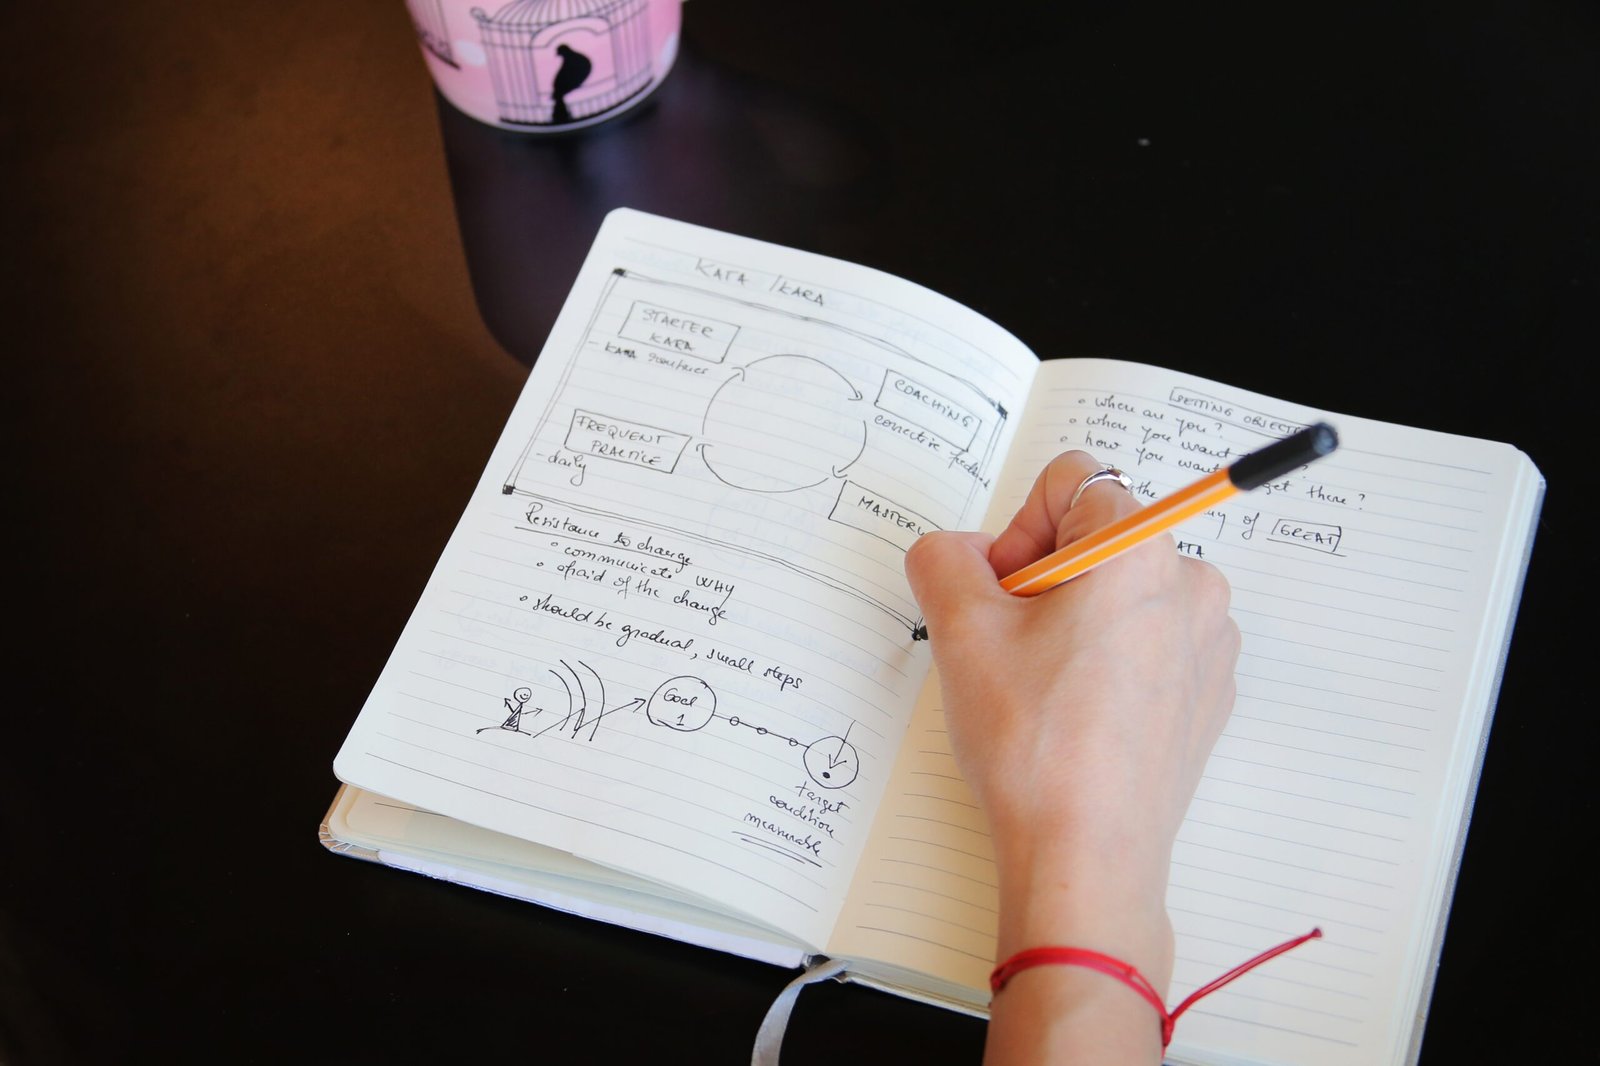 KATA / KARA
STARTER
KARA
- KATA routines
COACHING
corrective feedback
FREQUENT
PRACTICE
- daily
MASTERY
Resistance to change
• communicate WHY
• afraid of the change
• should be gradual, small steps
Goal
1
target
condition
measurable
SETTING OBJECT
• where are you?
• where you want ?
• how you want get there?
the
of GREAT
ATA